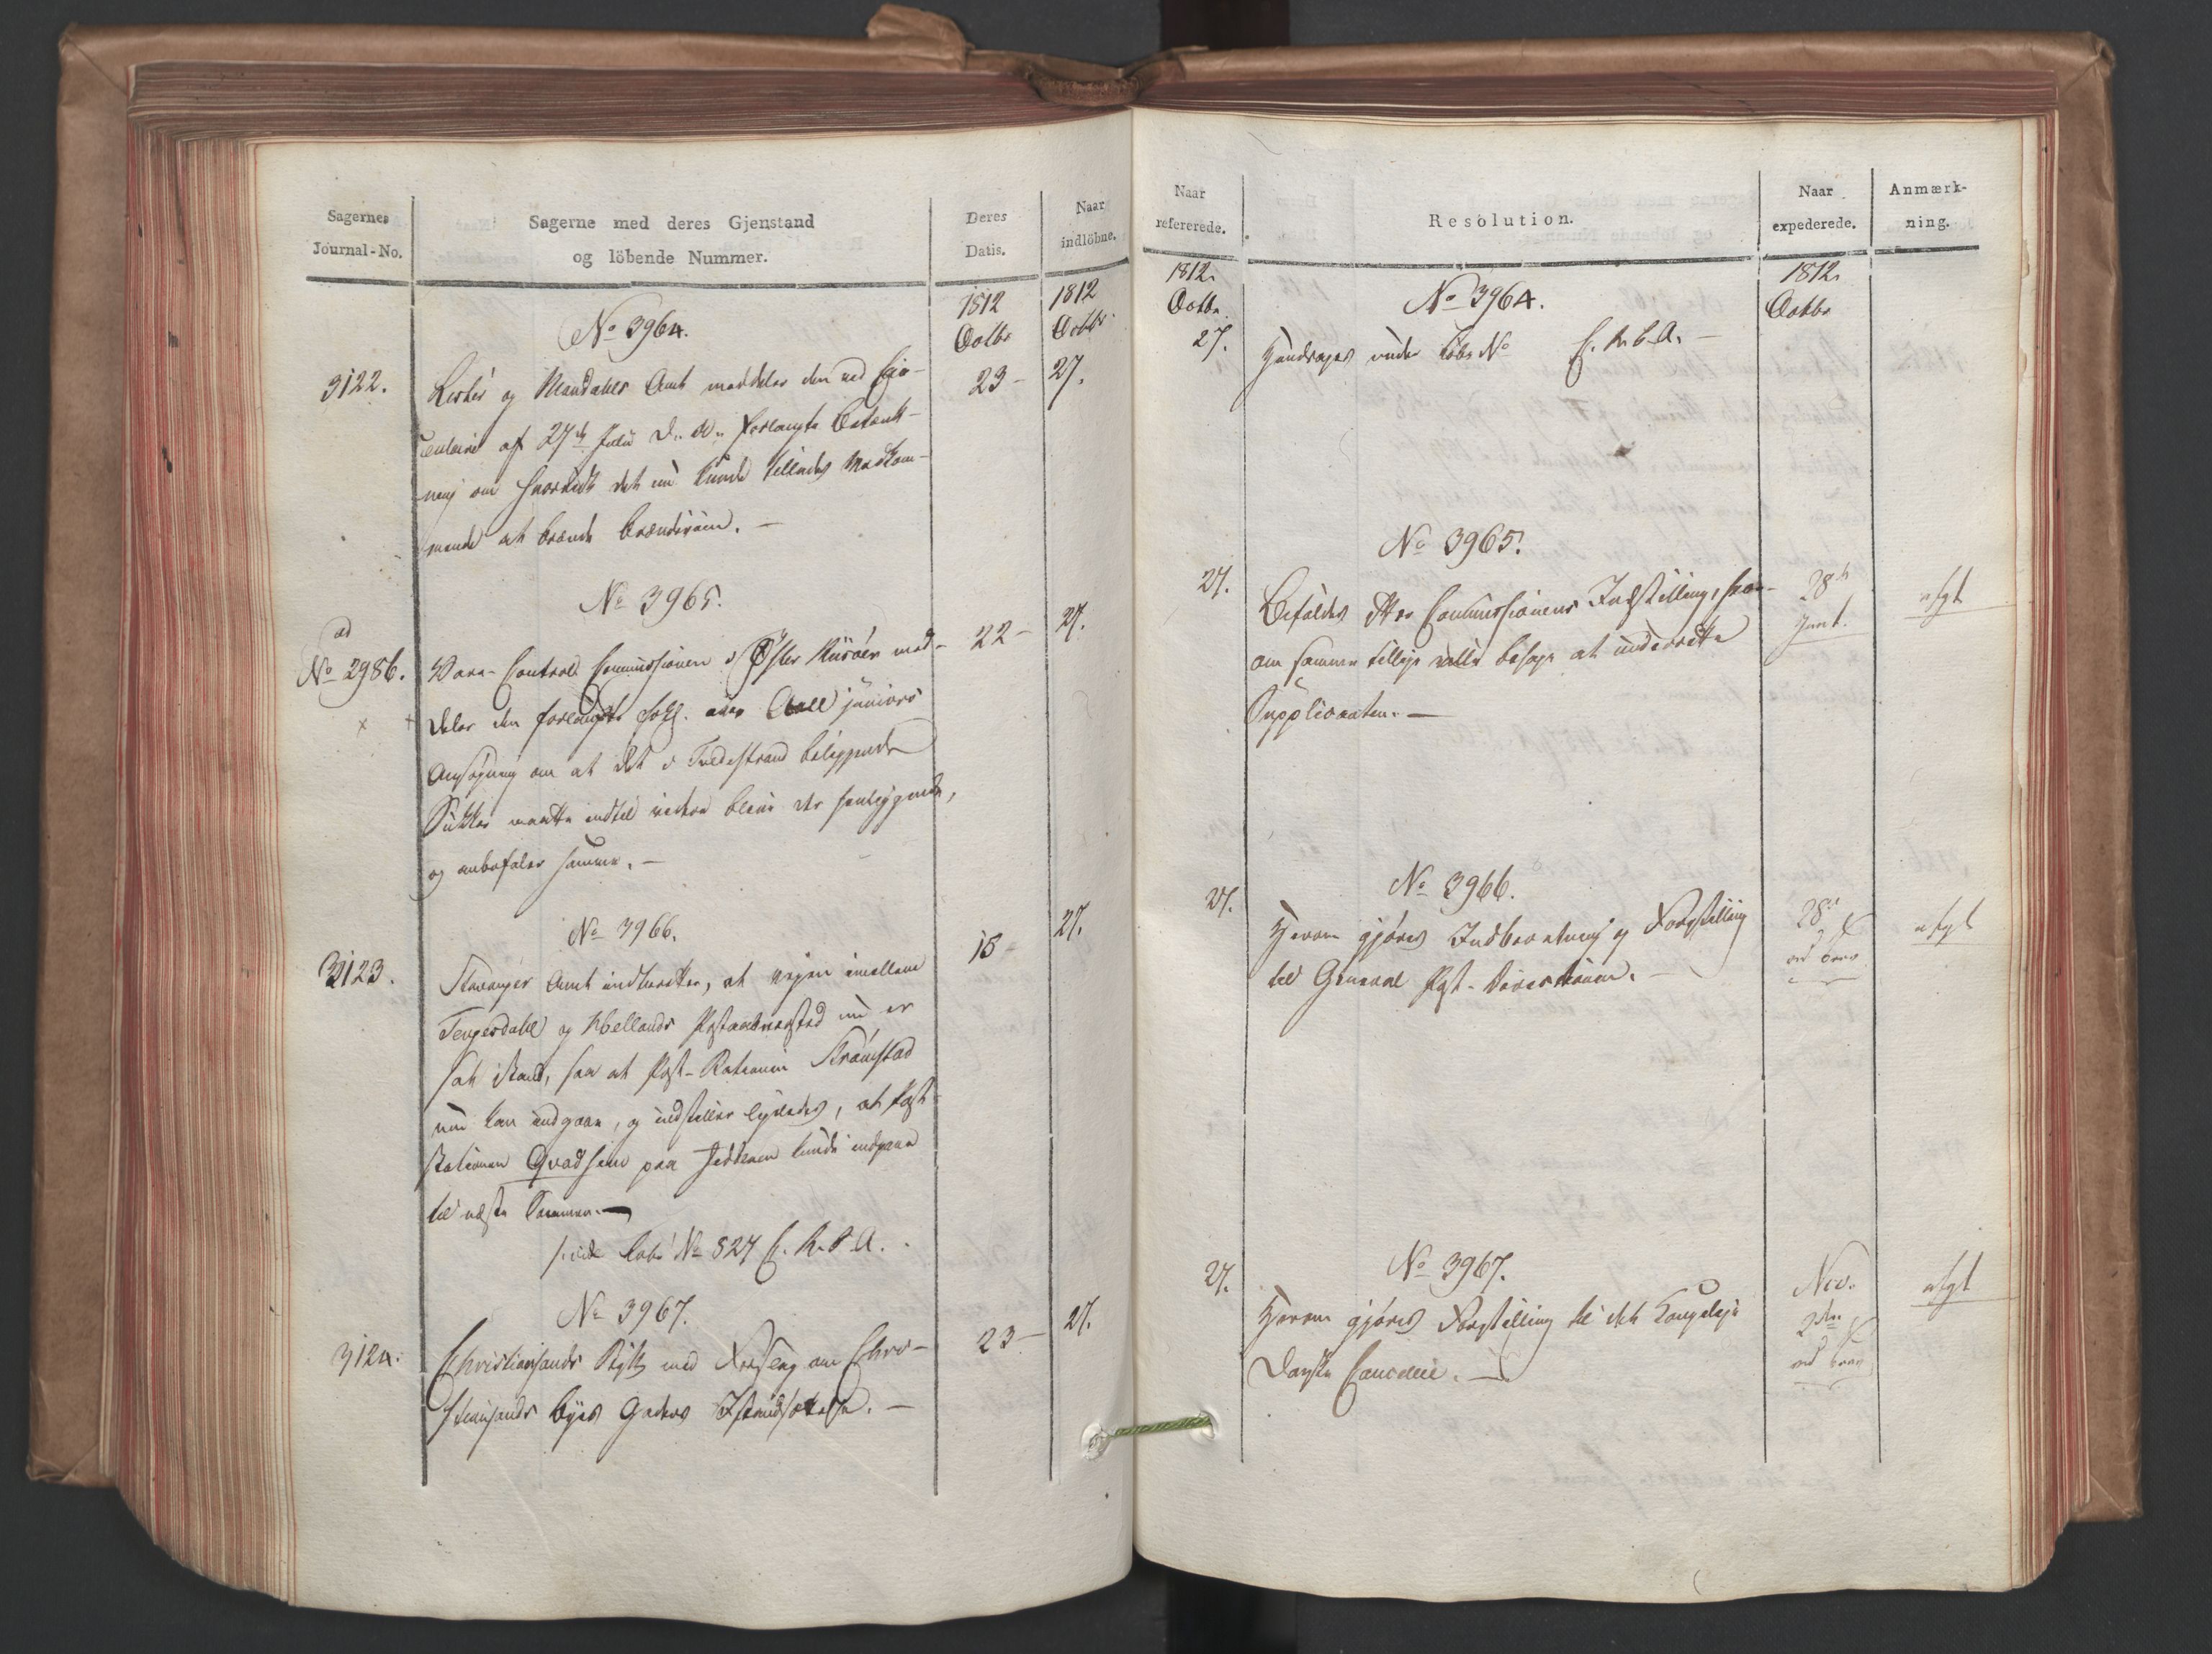 Sagernes
Journal-No.
Sagerne med deres Gjenstand
og löbende Nummer.
Deres
Datis.
Naar
indlöbne.
1812
Octbr
1812
Octbr
No 3964.
3122.
Lister og Mandahls Amt meddeler den ved Cir-
culaire af 27de Julii d. A. forlangte Betænk-
ning om hvorvidt det nu kunde tillades Medkom-
mende at brænde Brændeviin. —
23 –
27.
No 3965.
ad
No 2986.
Vare-Controll Commissionen i Øster Riisöer med-
deler den forlangte Erkl. over Aall juniors
Ansøgning om at det i Tvedestrand beliggende
Sukker maatte indtil videre blive der henliggende,
og anbefaler samme. —
22 –
27.
No 3966.
3123.
Stavanger Amt indberetter, at Vejen imellem
Tengesdahl og Hellands Postaabnersted nu er
sat istand, saa at Post-Stationen Strømstad
nu kan indgaae, og indstiller ligeledes, at Post-
stationen Qvadsem paa Jedderen kunde indgaae
til næste Sommer. —
vide Cobr No 827 C. R. P. A.
18 –
27.
No 3967.
3124.
Christiansands Stift med Forslag om Chri-
stiansands Byes Gaders Istandsættelse. —
23 –
27.
Naar
refererede.
Resolution.
Naar
expederede.
Anmærk-
ning.
1812.
Octbr.
1812.
Octbr
No 3964.
27.
Henlægges under Cobr No C. R. C. A. —
No 3965.
27.
Bifaldes efter Commissionens Indstilling, hvor-
om samme tillige ville behage at underrette
Supplicanten. —
28de
afgt
No 3966.
27.
Herom gjøres Indberetning og Forestilling
til General Post-Directionen. —
28de
ved Brev
afgt
No 3967.
27.
Herom gjøres Forestilling til det Kongelige
Danske Cancellie. —
Nov.
2den
ved Brev
afgt